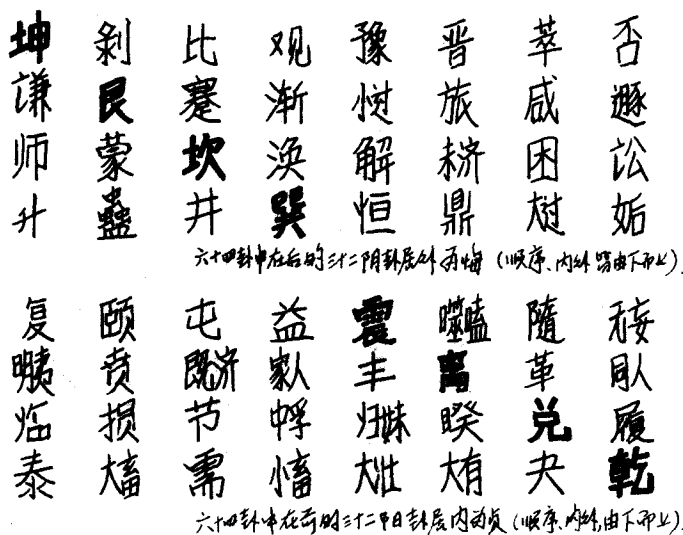 坤 剥 比 观 豫 晋 萃 否
谦 艮 蹇 渐 小过 旅 咸 遯
师 蒙 坎 涣 解 未济 困 讼
升 蠱 井 巽 恒 鼎 大过 姤
六十四卦中在后的三十二阴卦居外为悔(顺序、内外皆由下而上).
复 颐 屯 益 震 噬嗑 隨 无妄
明夷 贲 既济 家人 丰 离 革 同人
临 损 节 中孚 归妹 睽 兑 履
泰 大畜 需 小畜 大壮 大有 夬 乾
六十四卦中在前的三十二阳卦居内为贞(顺序、内外,由下而上).